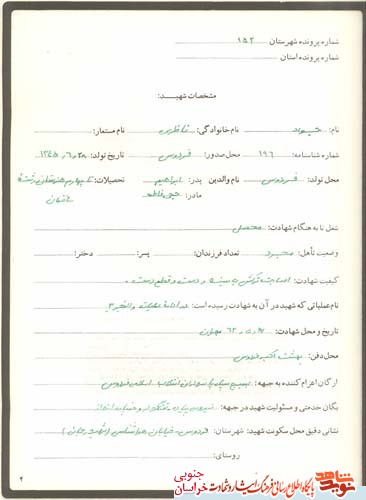 شماره پرونده شهرستان ۱۵۲
شماره پرونده استان
مشخصات شهید:
نام: جواد نام خانوادگی: ناظری نام مستعار:
شماره شناسنامه: ۱۹۶ محل صدور: فردوس تاریخ تولد: ۱۳۴۵
محل تولد: فردوس نام والدین پدر: ابراهیم تحصیلات:
مادر:
شغل تا به هنگام شهادت: محصل
وضعیت تأهل: مجرد تعداد فرزندان: پسر: دختر:
کیفیت شهادت: اصابت ترکش به سینه و دست و قطع دست
نام عملیاتی که شهید در آن به شهادت رسیده است: در ادامه عملیات والفجر ۳
تاریخ و محل شهادت: ۶۲ مهران
محل دفن: بهشت اکبر فردوس
ارگان اعزام کننده به جبهه: بسیج سپاه پاسداران انقلاب اسلامی فردوس
یگان خدمتی و مسئولیت شهید در جبهه: نیروی پیاده
نشانی دقیق محل سکونت شهید: شهرستان: فردوس خیابان
روستای:
۲
نوید شاهد
پایگاه اطلاع رسانی فرهنگ ایثار و شهادت
خراسان جنوبی